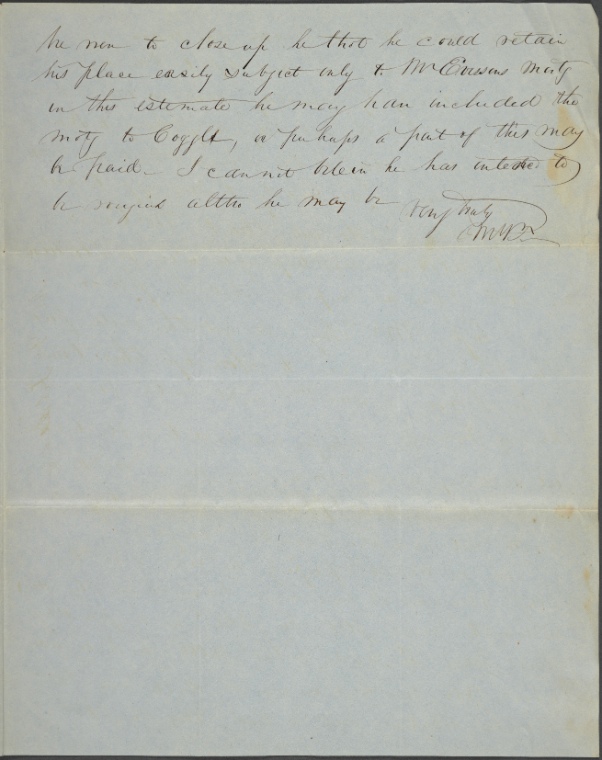 to close up he thot he could retain
his place easily subject only to Mr Eversons mortg
in this estimate he may han included the
motg to Coggll, or perhaps a part of this may
be paid. I cannot belein he has intended to
be altho he may be very truly